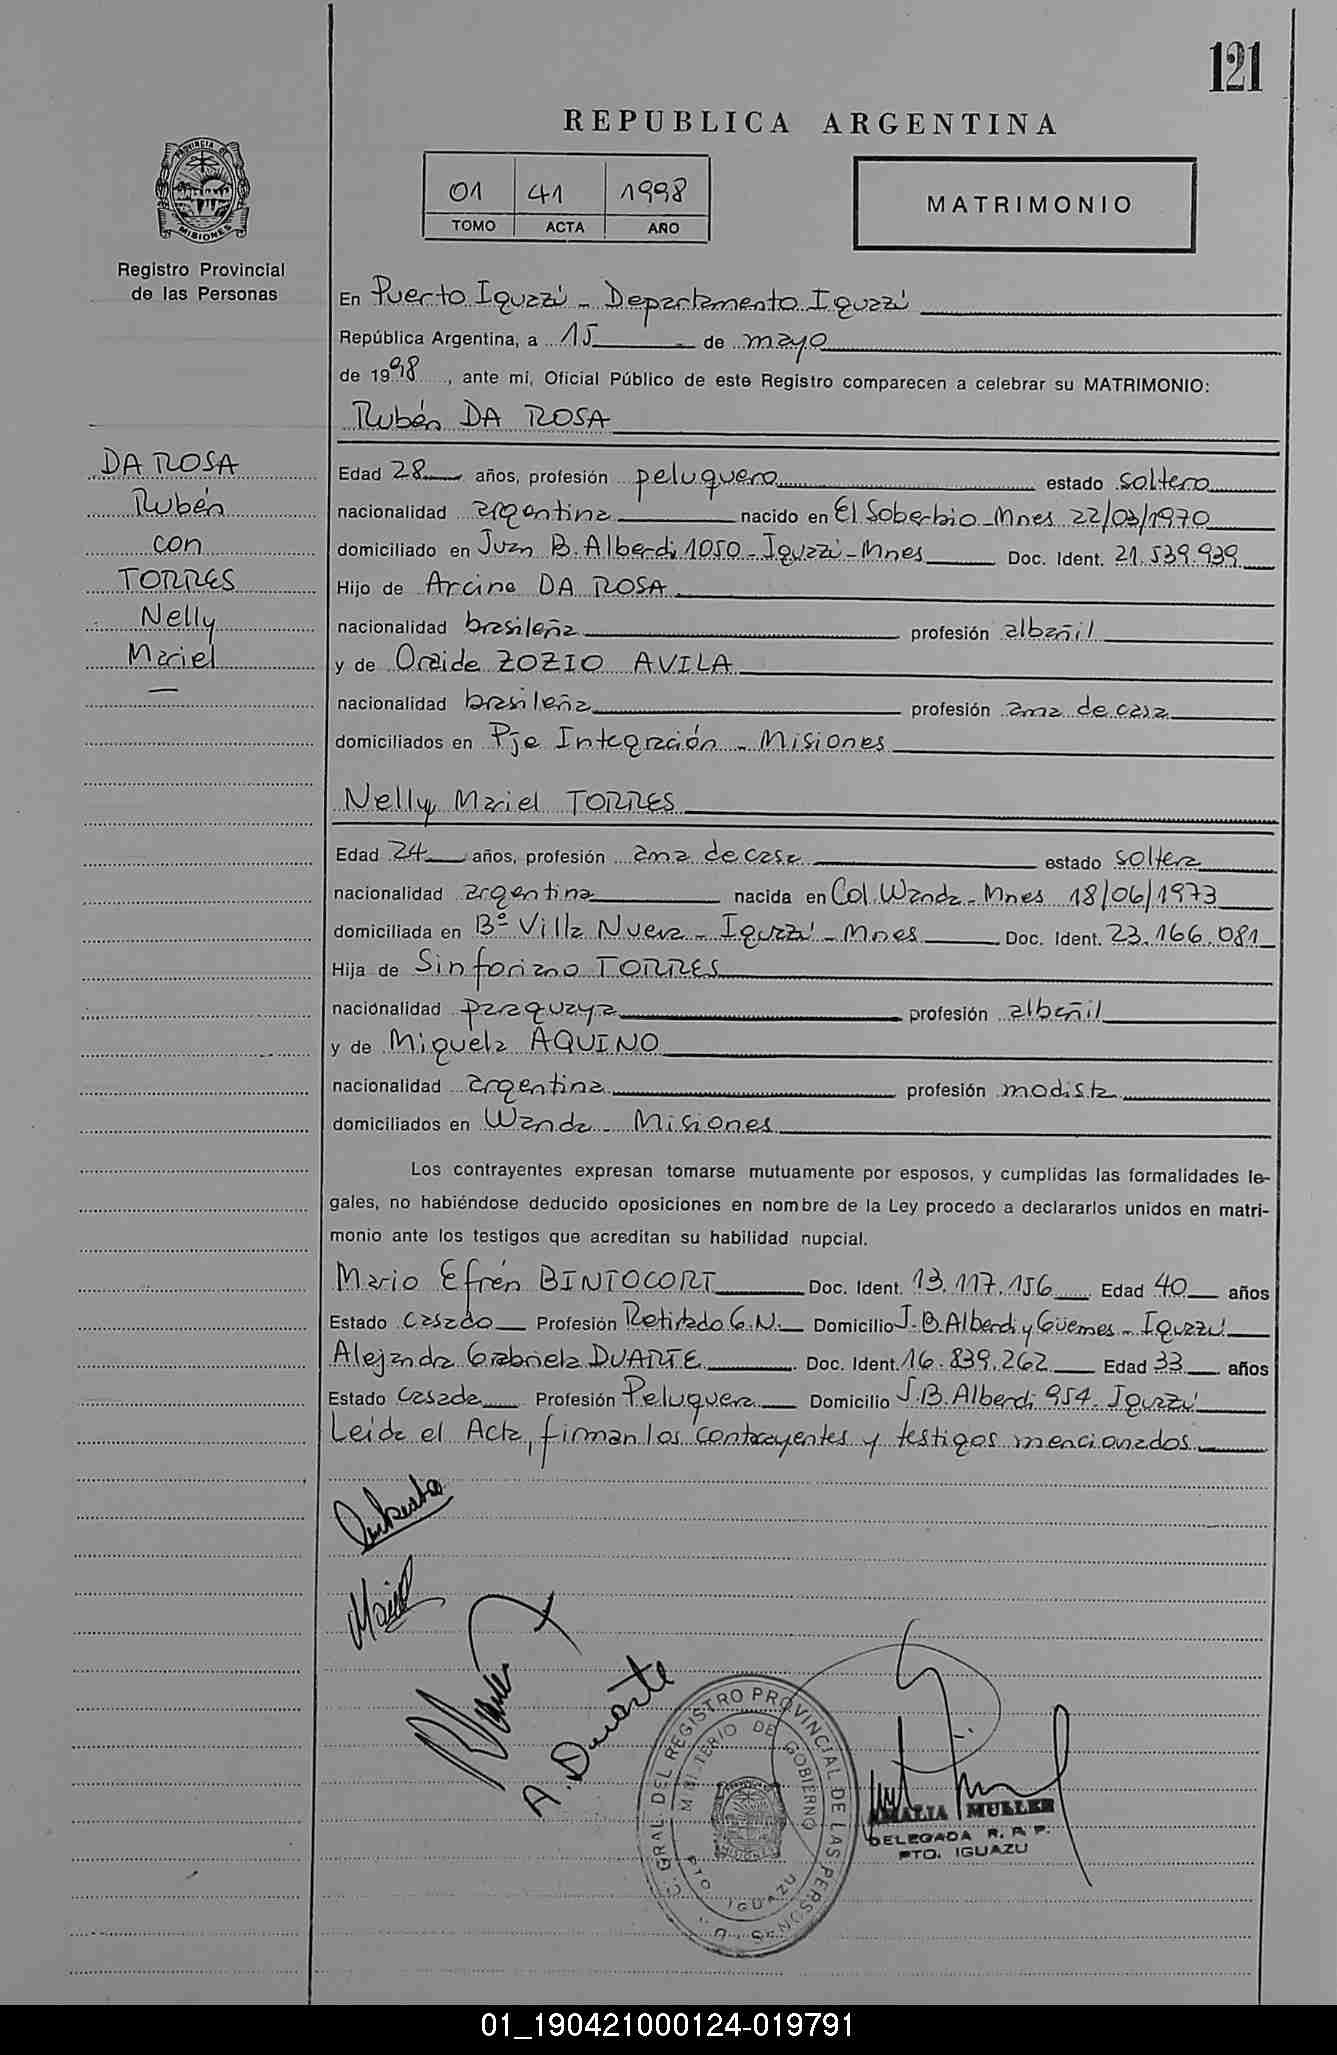 121
REPUBLICA ARGENTINA
PROVINCIA DE
MISIONES
Registro Provincial
de las Personas
01 41 1998
TOMO ACTA AÑO
MATRIMONIO
En Puerto Iguazú - Departamento Iguazú
República Argentina, a 15 de mayo
de 1998, ante mi, Oficial Público de este Registro comparecen a celebrar su MATRIMONIO:
Rubén DA ROSA
DA ROSA
Rubén
con
TORRES
Nelly
Mariel
Edad 28 años, profesión peluquero estado soltero
nacionalidad argentina nacido en El Soberbio-Mnes 22/03/1970
domiciliado en Juan B. Alberdi 1050 - Iguazú - Mnes Doc. Ident. 21.539.939
Hijo de Arcino DA ROSA
nacionalidad brasileña profesión albañil
y de Oraide ZOZIO AVILA
nacionalidad brasileña profesión ama de casa
domiciliados en Pje Integración - Misiones
Nelly Mariel TORRES
Edad 24 años, profesión ama de casa estado soltera
nacionalidad argentina nacida en Col. Wanda - Mnes 18/06/1973
domiciliada en Bº Villa Nueva - Iguazú - Mnes Doc. Ident. 23.166.081
Hija de Sinforiano TORRES
nacionalidad paraguaya profesión albañil
y de Miguela AQUINO
nacionalidad argentina profesión modista
domiciliados en Wanda - Misiones
Los contrayentes expresan tomarse mutuamente por esposos, y cumplidas las formalidades le-
gales, no habiéndose deducido oposiciones en nombre de la Ley procedo a declararlos unidos en matri-
monio ante los testigos que acreditan su habilidad nupcial.
Mario Efrén BINTOCORT Doc. Ident. 13.117.156 Edad 40 años
Estado casado Profesión Retirado G.N. Domicilio J.B. Alberdi y Güemes - Iguazú
Alejandra Gabriela DUARTE Doc. Ident. 16.839.262 Edad 33 años
Estado casada Profesión Peluquera Domicilio J.B. Alberdi 954 - Iguazú
Leída el Acta, firman los contrayentes y testigos mencionados
Mariel
A. Duarte
GRAL. DEL REGISTRO PROVINCIAL DE LAS PERSONAS
MINISTERIO DE GOBIERNO
PTO. IGUAZU
AMALIA MULLER
DELEGADA R. P. P.
PTO. IGUAZU
01_190421000124-019791